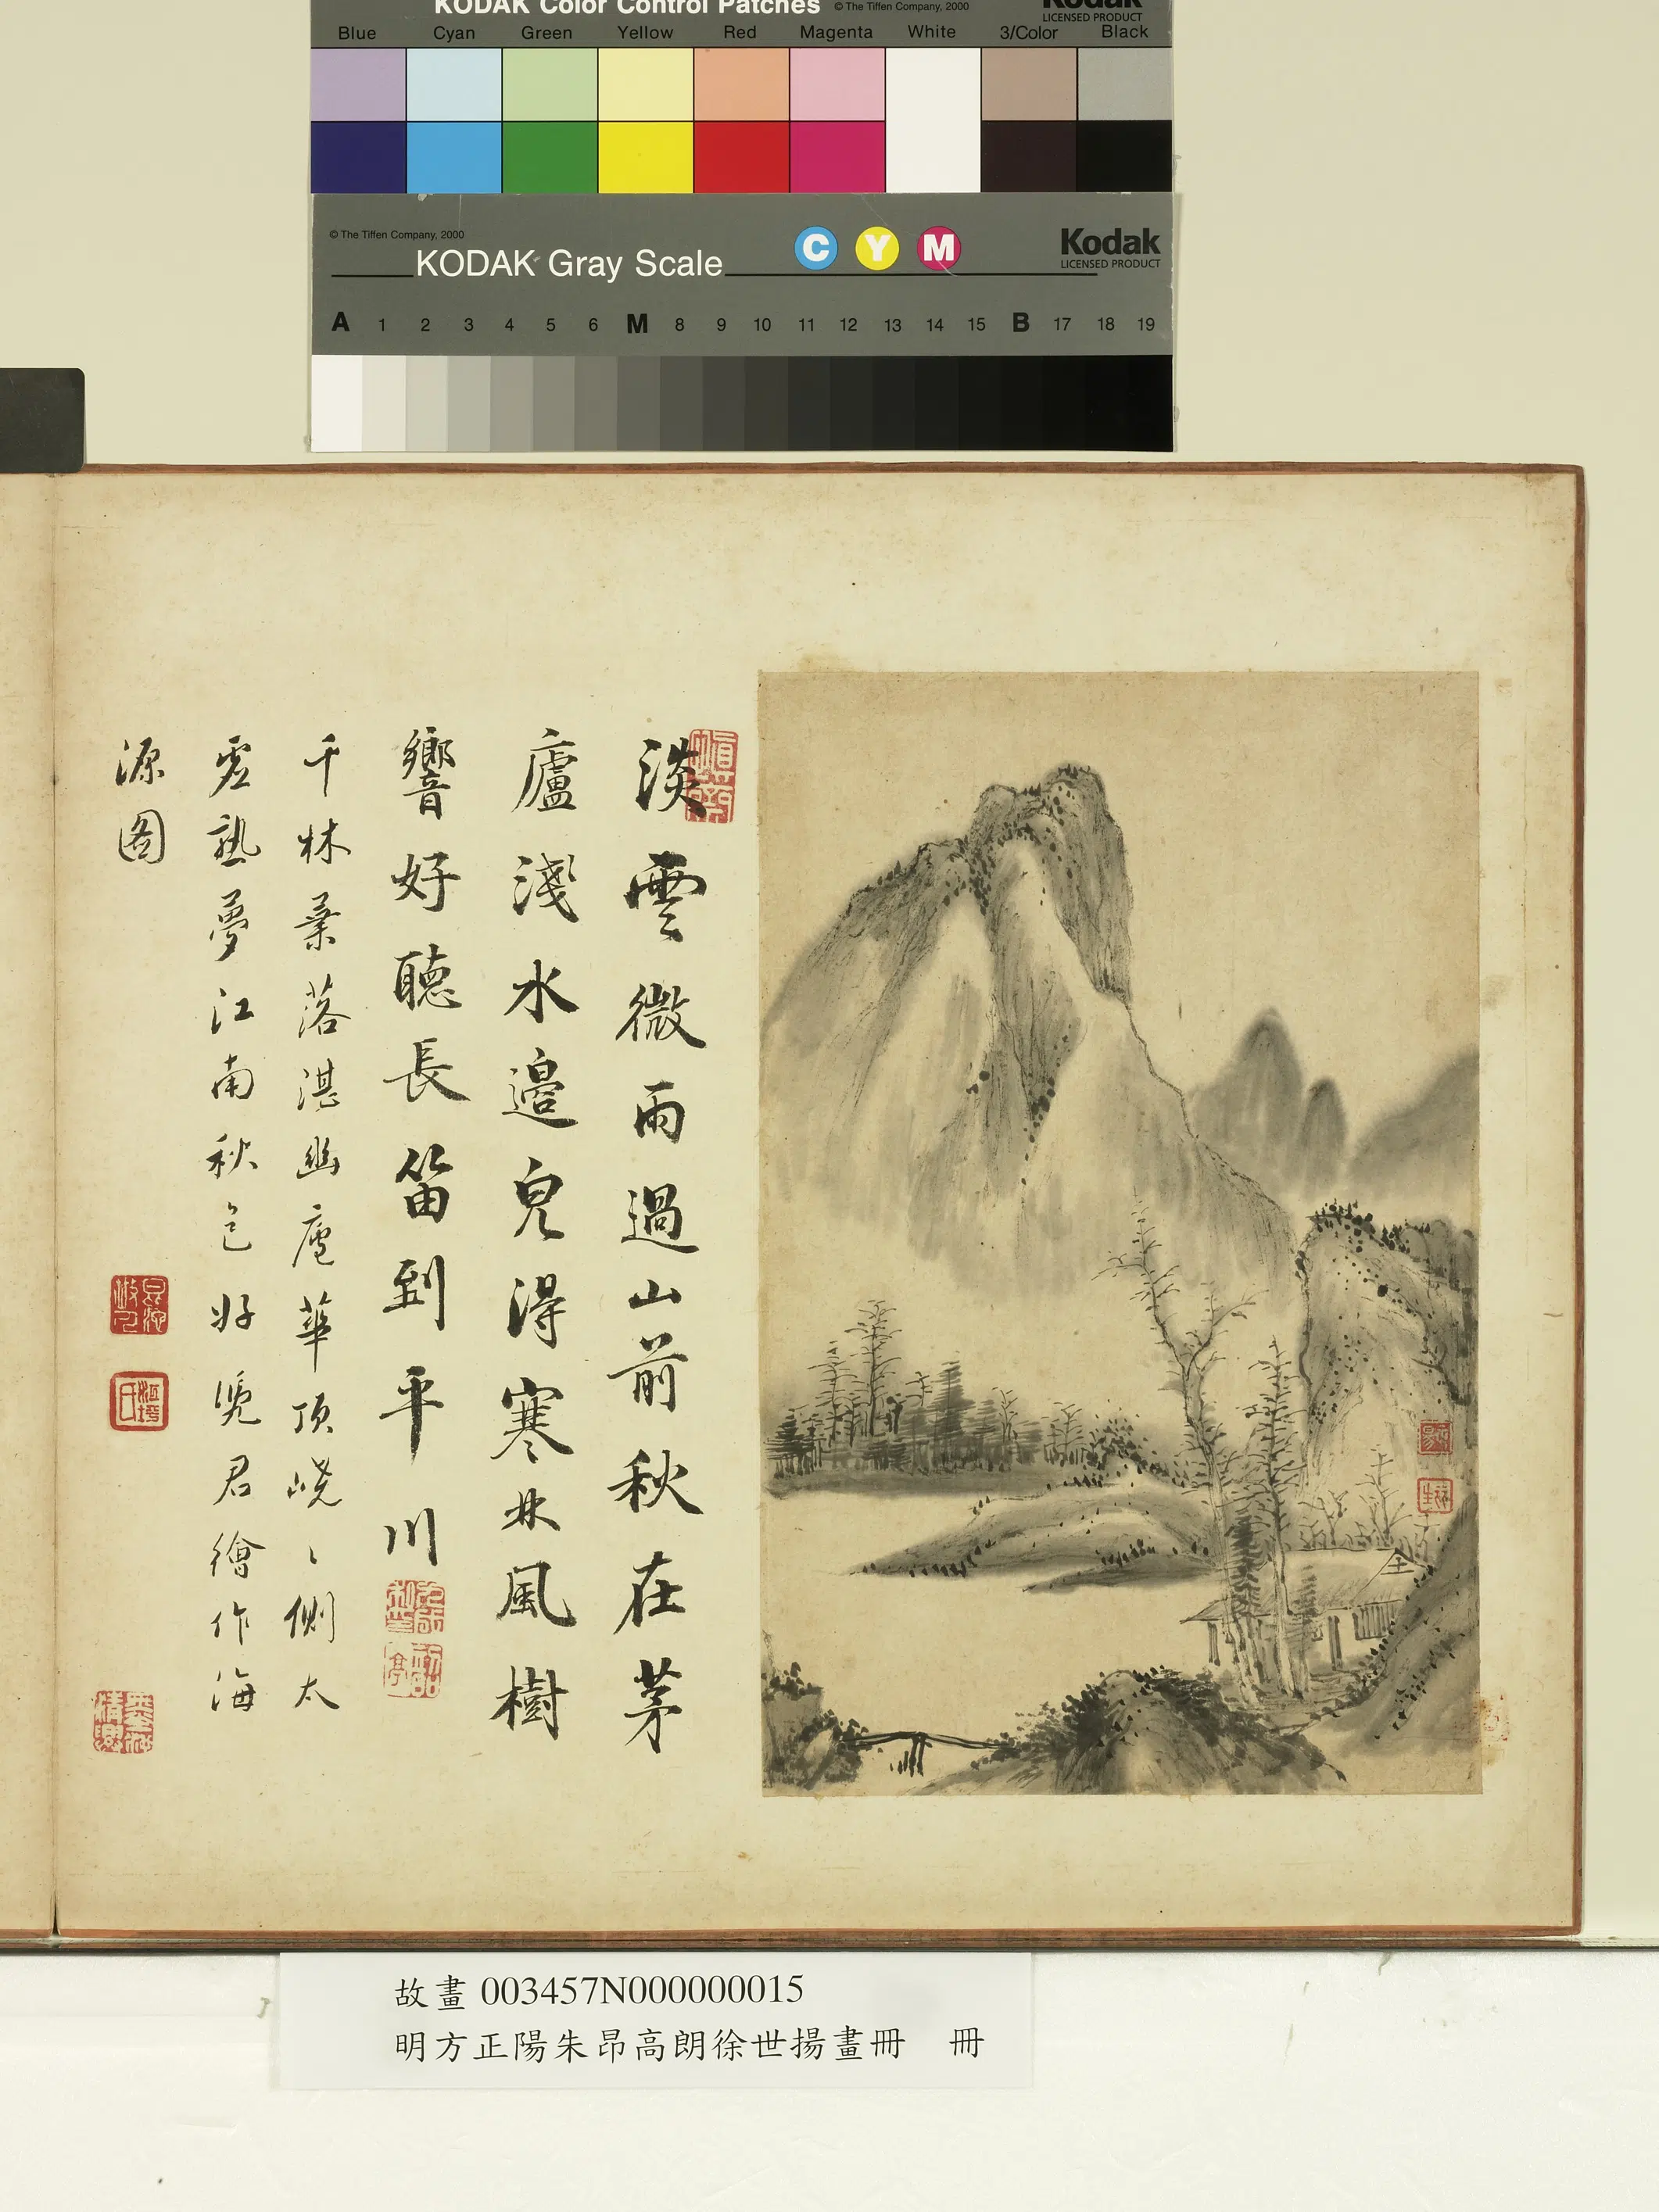 KODAK Color Control Patches © The Tiffen Company, 2000 Kodak
LICENSED PRODUCT
Blue Cyan Green Yellow Red Magenta White 3/Color Black
© The Tiffen Company, 2000
KODAK Gray Scale C Y M Kodak
LICENSED PRODUCT
A 1 2 3 4 5 6 M 8 9 10 11 12 13 14 15 B 17 18 19
淡雲微雨過山前秋在茅
廬淺水邊兒得寒林風樹
響好聽長笛到平川
千林葉落湛幽廬華頂峣〻側太
虛熟夢江南秋色好憑君繪作海
源圖
故畫003457N000000015
明方正陽朱昂高朗徐世揚畫冊 冊